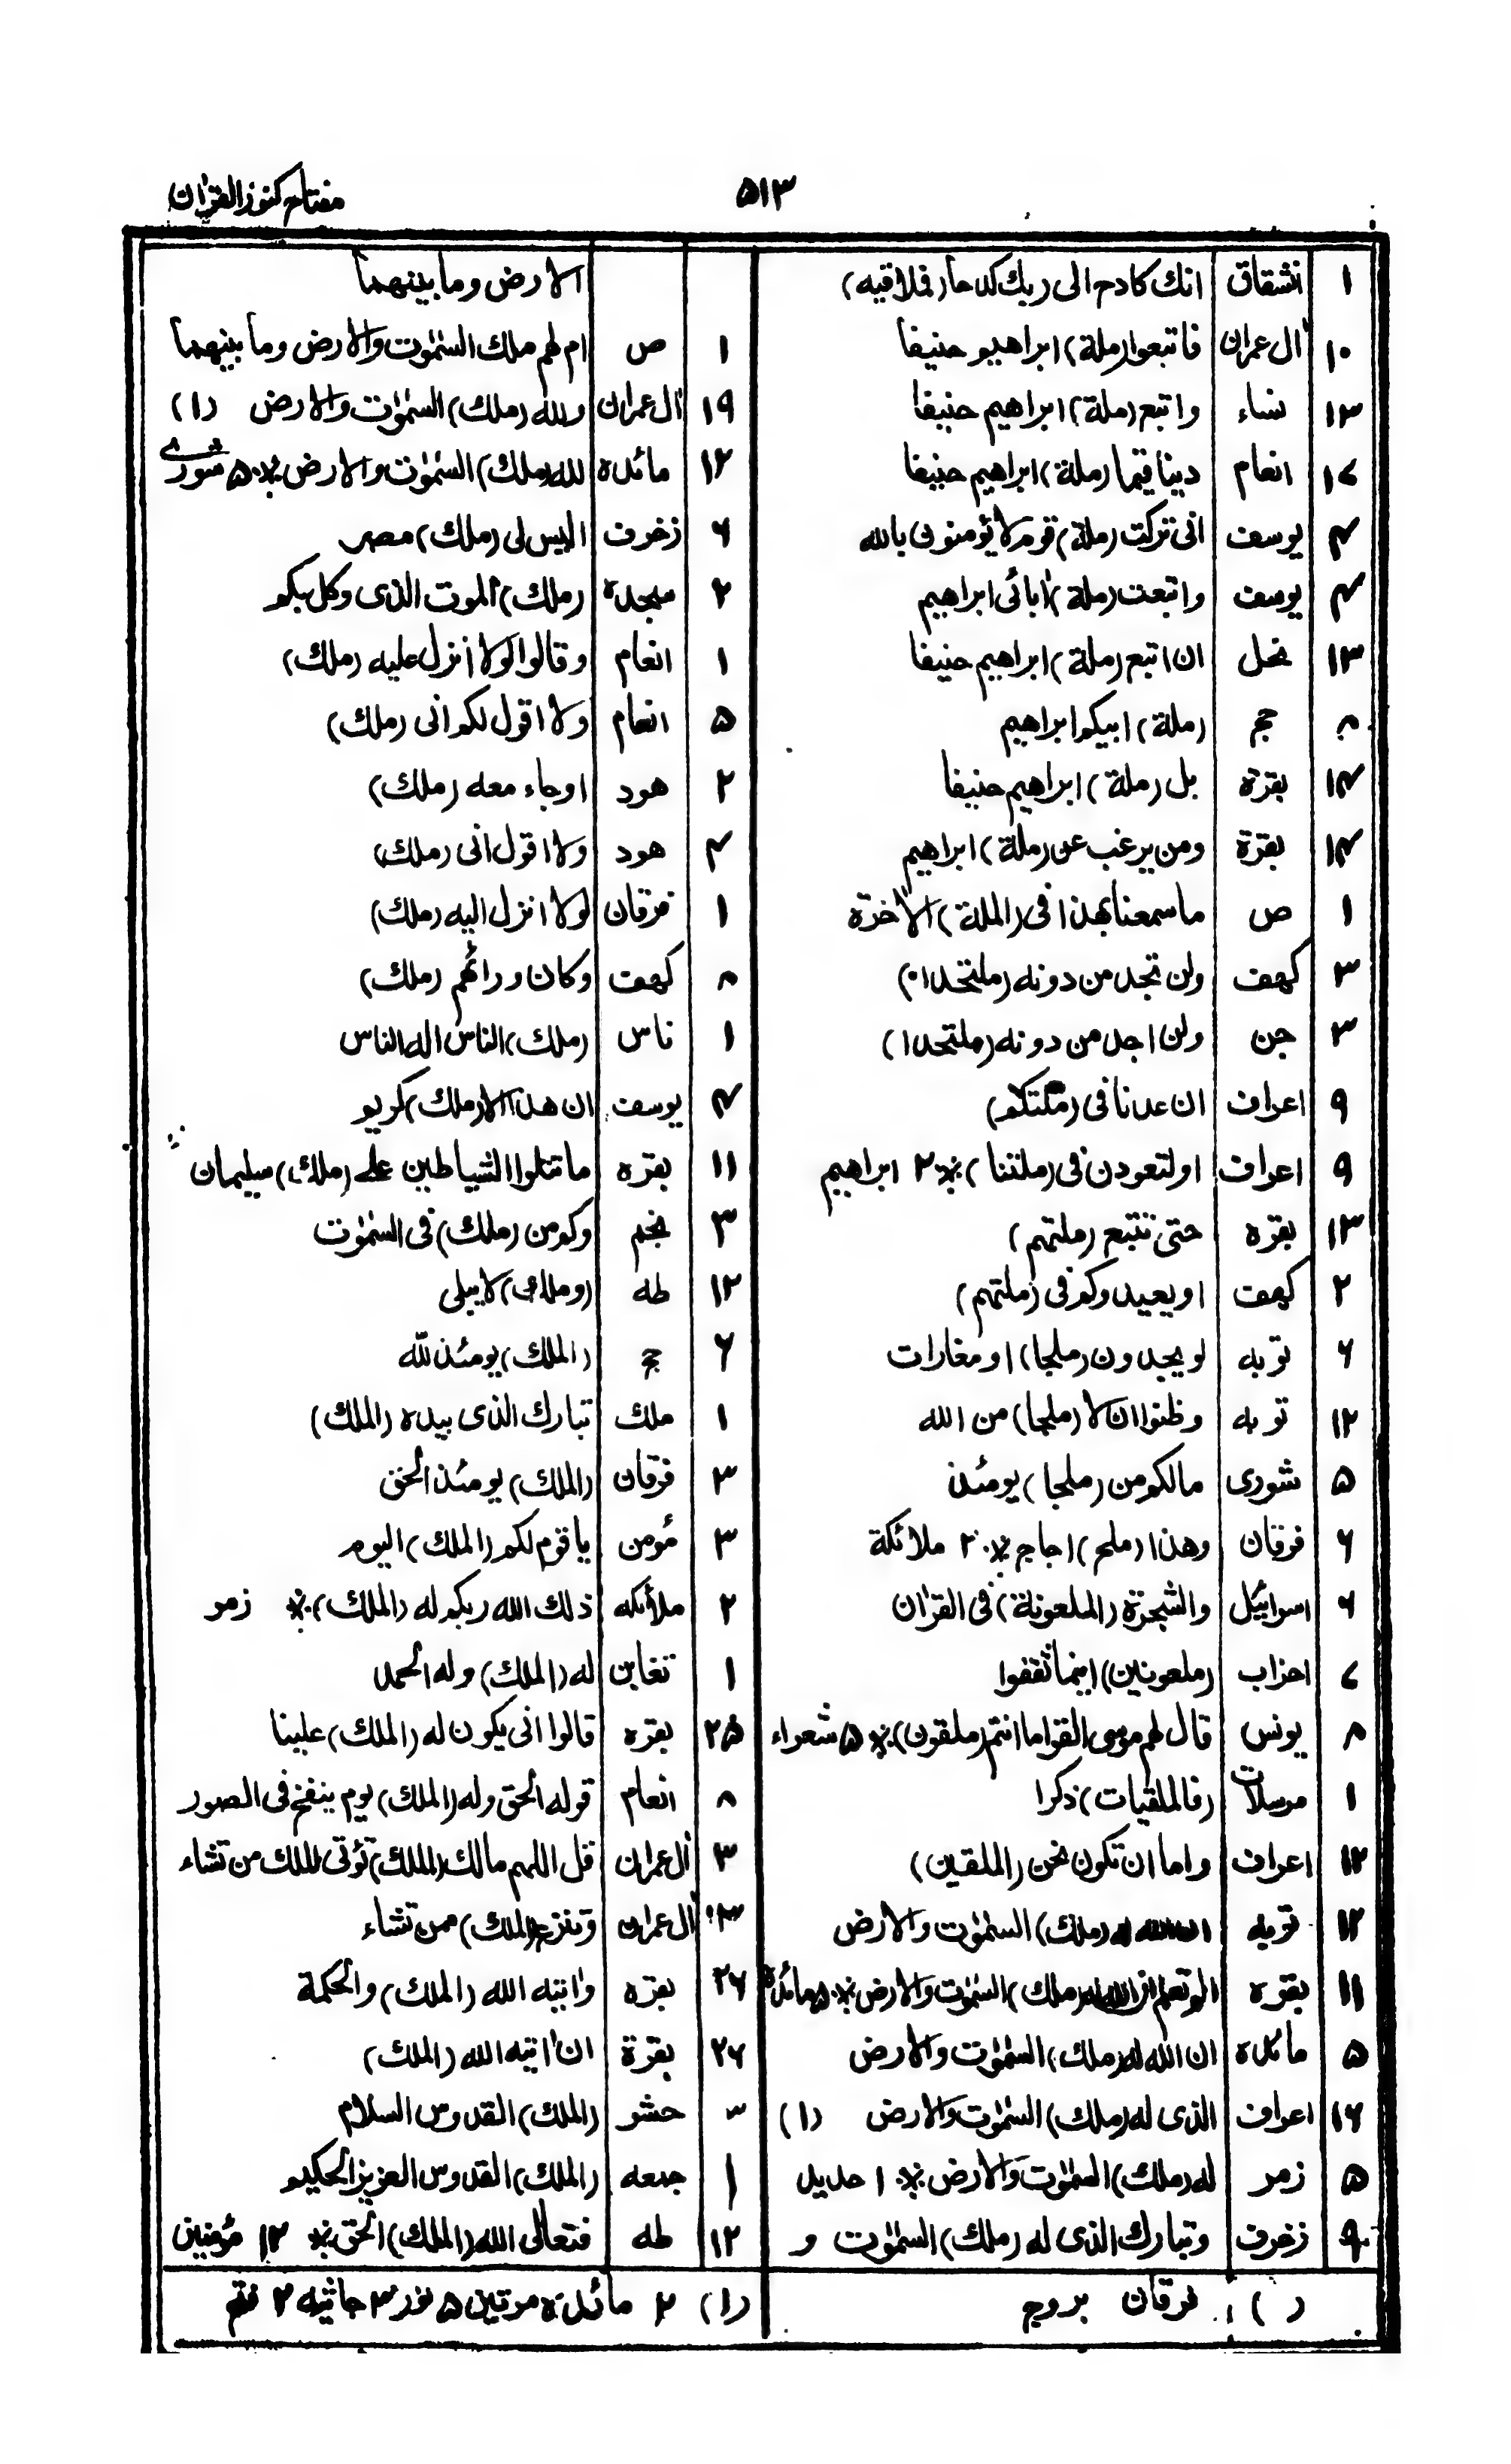 ۵۱۳ مفتاح کنوز القرآن
۱ انشقاق انك كادح الى ربك كدحا (فملاقيه)
۱۰ آل عمران فاتبعوا (ملة) ابراهيم حنيفا
۱۳ نساء واتبع (ملة) ابراهيم حنيفا
انعام دينا قيما (ملة) ابراهيم حنيفا
۴ يوسف انى تركت (ملة) قوم لا يؤمنون بالله
۴ يوسف واتبعت (ملة) اٰبائى ابراهيم
۱۳ نحل ان اتبع (ملة) ابراهيم حنيفا
۸ حج (ملة) ابيكم ابراهيم
۱۴ بقرة بل (ملة) ابراهيم حنيفا
۱۴ بقرة ومن يرغب عن (ملة) ابراهيم
۱ ص ما سمعنا بهذا فى (الملة) الاٰخرة
۳ كهف ولن تجد من دونه (ملتحدا)
۳ جن ولن اجد من دونه (ملتحدا)
۹ اعراف ان عدنا فى (ملتكم)
۹ اعراف او لتعودن فى (ملتنا) ٪ ۲ ابراهيم
۱۳ بقره حتى تتبع (ملتهم)
۲ كهف او يعيدوكم فى (ملتهم)
۶ توبه لو يجدون (ملجا) او مغارات
۱۲ توبه وظنوا ان لا (ملجا) من الله
۵ شورى مالكم من (ملجا) يومئذ
۶ فرقان وهذا (ملح) اجاج ٪ ۲ ملائكة
۶ اسرائيل والشجرة (الملعونة) فى القرٰان
۷ احزاب (ملعونين) اينما ثقفوا
۸ يونس قال لهم موسى القوا ما انتم (ملقون) ٪ ۵ شعراء
۱ مرسلات (فالملقيات) ذكرا
۱۲ اعراف واما ان نكون نحن (الملقين)
۱۲ توبه ان الله له (ملك) السمٰوٰت والارض
۱۱ بقره الم تعلم ان الله له (ملك) السمٰوٰت والارض ٪ ۵ مائدة
۵ مائدة ان الله له (ملك) السمٰوٰت والارض
۱۶ اعراف الذى له (ملك) السمٰوٰت والارض (۱)
۵ زمر له (ملك) السمٰوٰت والارض ٪ ۱ حديد
۹ زخرف وتبارك الذى له (ملك) السمٰوٰت و
( ) ۱ فرقان بروج
الارض وما بينهما
۱ ص ام لهم ملك السمٰوٰت والارض وما بينهما
۱۹ آل عمران ولله (ملك) السمٰوٰت والارض (۱)
۱۲ مائدة لله (ملك) السمٰوٰت والارض ٪ ۵ شورى
۶ زخرف اليس لى (ملك) مصر
۲ سجدة (ملك) الموت الذى وكل بكم
۱ انعام وقالوا لولا انزل عليه (ملك)
۵ انعام ولا اقول لكم انى (ملك)
۲ هود او جاء معه (ملك)
۴ هود ولا اقول انى (ملك)
۱ فرقان لولا انزل اليه (ملك)
۸ كهف وكان ورائهم (ملك)
۱ ناس (ملك) الناس اله الناس
۴ يوسف ان هذا الا (ملك) كريم
۱۱ بقره ما تتلوا الشياطين على (ملك) سليمان
۳ نجم وكم من (ملك) فى السمٰوٰت
۱۲ طه (وملك) لا يبلى
۶ حج (الملك) يومئذ لله
۱ ملك تبارك الذى بيده (الملك)
۳ فرقان (الملك) يومئذ الحق
۳ مؤمن يا قوم لكم (الملك) اليوم
۲ ملائكه ذلك الله ربكم له (الملك) ٪ زمر
۱ تغابن له (الملك) وله الحمد
۲۵ بقره قالوا انى يكون له (الملك) علينا
۸ انعام قوله الحق وله (الملك) يوم ينفخ فى الصور
۳ آل عمران قل اللهم مالك (الملك) تؤتى الملك من تشاء
۳ آل عمران وتنزع (الملك) ممن تشاء
۲۶ بقره واٰتيه الله (الملك) والحكمة
۲۶ بقرة ان اٰتيه الله (الملك)
۳ حشر (الملك) القدوس السلام
۱ جمعه (الملك) القدوس العزيز الحكيم
۱۲ طه فتعالى الله (الملك) الحق ٪ ۱۲ مؤمنين
(۱) ۲ مائدة مرتين ۵ نور ۳ جاثيه ۲ فتح